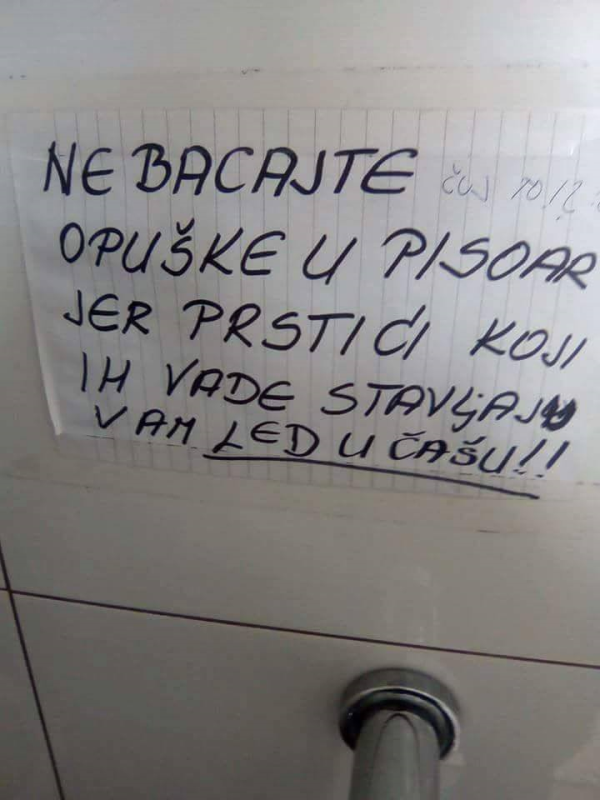 NE BACAJTE
OPUŠKE U PISOAR
JER PRSTIĆI KOJI
IH VADE STAVLJAJU
VAM LED U ČAŠU!!